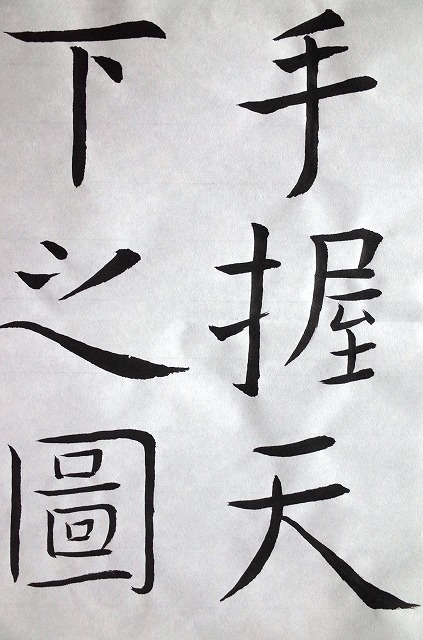 手握天
下之圖